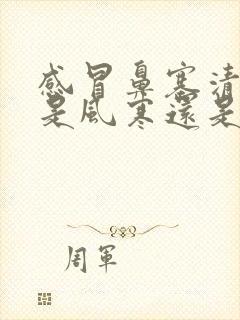 感冒鼻塞清
是風寒還是
周軍